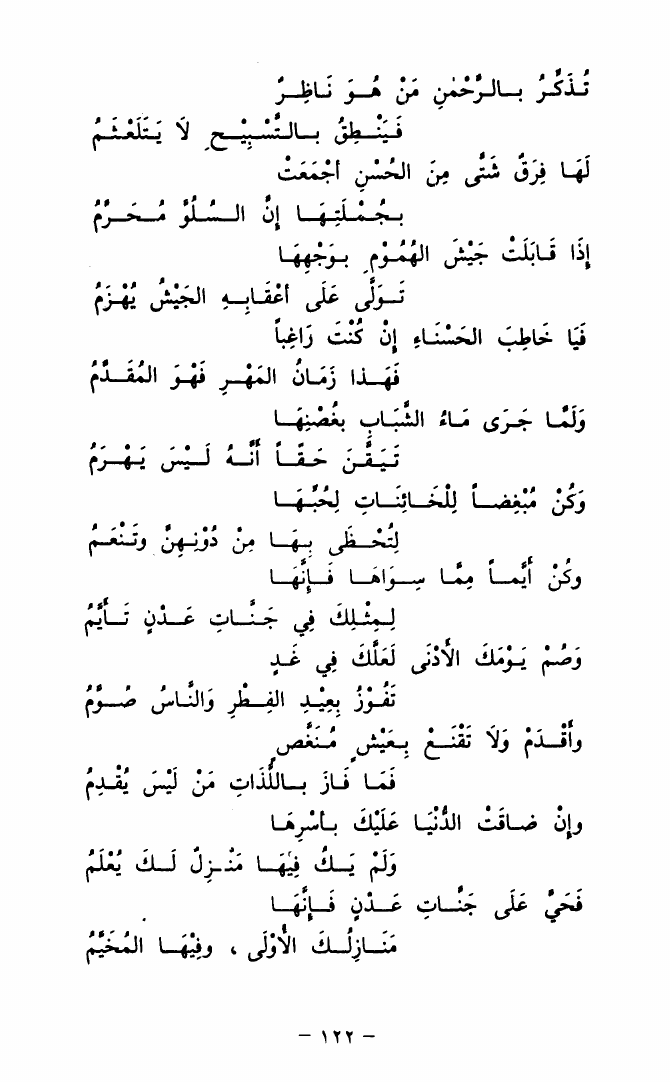 تُذَكِّرُ بِالرَّحْمٰنِ مَنْ هُوَ نَاظِرٌ
فَيَنْطِقُ بِالتَّسْبِيْحِ لَا يَتَلَعْثَمُ
لَهَا فِرَقٌ شَتَّى مِنَ الحُسْنِ أَجْمَعَتْ
بِجُمْلَتِهَا إِنَّ السُّلُوَّ مُحَرَّمُ
إِذَا قَابَلَتْ جَيْشَ الهُمُوْمِ بِوَجْهِهَا
تَوَلَّى عَلَى أَعْقَابِهِ الجَيْشُ يُهْزَمُ
فَيَا خَاطِبَ الحَسْنَاءِ إِنْ كُنْتَ رَاغِباً
فَهَذَا زَمَانُ المَهْرِ فَهْوَ المُقَدَّمُ
وَلَمَّا جَرَى مَاءُ الشَّبَابِ بِغُصْنِهَا
تَيَقَّنَ حَقّاً أَنَّهُ لَيْسَ يَهْرَمُ
وَكُنْ مُبْغِضاً لِلْخَائِنَاتِ لِحُبِّهَا
لِتُحْظَى بِهَا مِنْ دُوْنِهِنَّ وتَنْعَمُ
وكُنْ أَيِّماً مِمَّا سِوَاهَا فَإِنَّهَا
لِمِثْلِكَ فِي جَنَّاتِ عَدْنٍ تَأَيَّمُ
وَصُمْ يَوْمَكَ الأَدْنَى لَعَلَّكَ فِي غَدٍ
تَفُوْزُ بِعِيْدِ الفِطْرِ وَالنَّاسُ صُوَّمُ
وأَقْدَمْ وَلَا تَقْنَعْ بِعَيْشٍ مُنَغَّصٍ
فَمَا فَازَ بِاللَّذَاتِ مَنْ لَيْسَ يُقْدِمُ
وإِنْ ضَاقَتْ الدُّنْيَا عَلَيْكَ بِأَسْرِهَا
وَلَمْ يَكُ فِيْهَا مَنْزِلٌ لَكَ يُعْلَمُ
فَحَيَّ عَلَى جَنَّاتِ عَدْنٍ فَإِنَّهَا
مَنَازِلُكَ الأُوْلَى ، وفِيْهَا المُخَيَّمُ
– ١٢٢ –